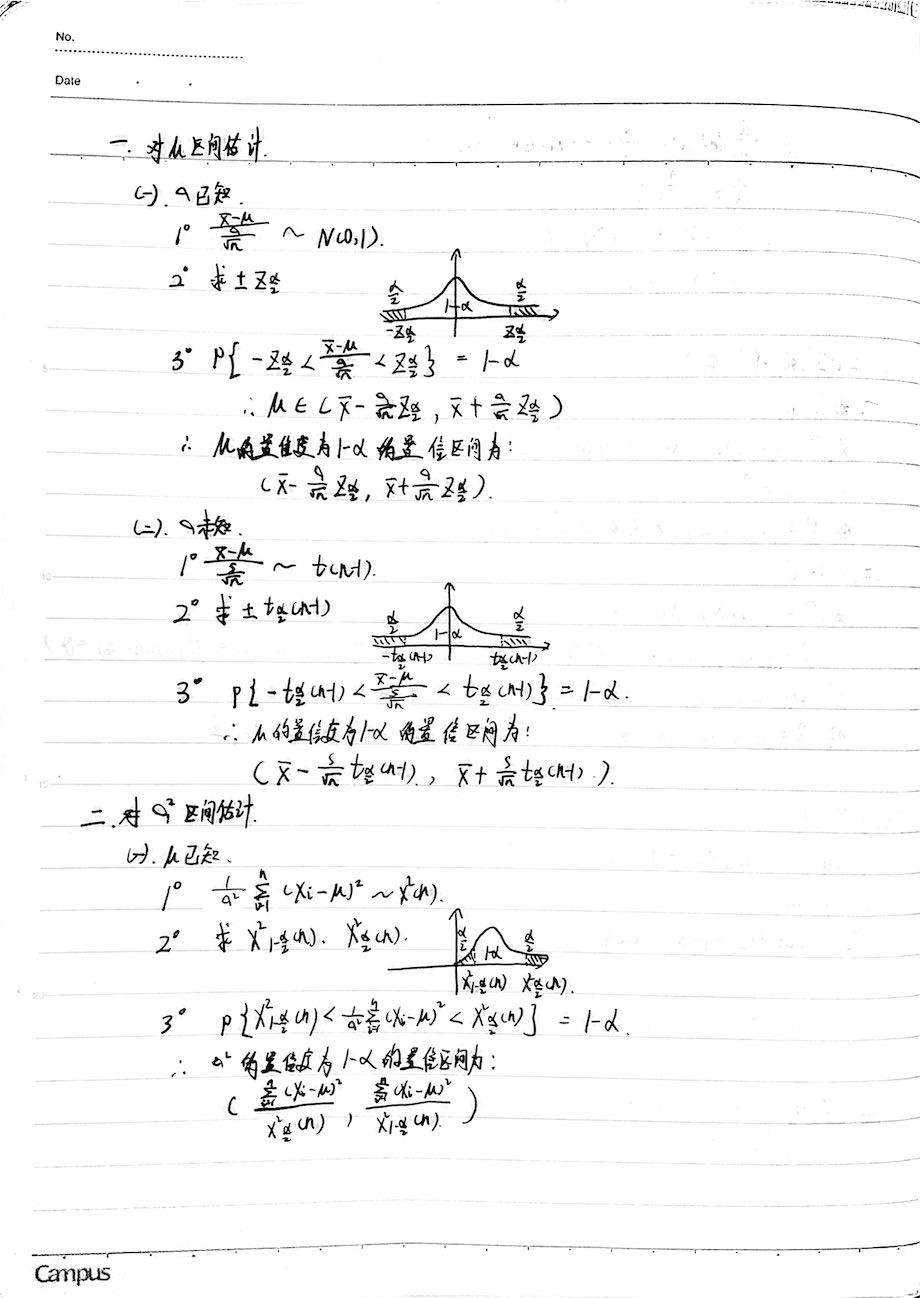 No.
Date
一. 对μ区间估计.
(一). σ已知.
1° (x̄-μ)/(σ/√n) ~ N(0,1).
2° 求 ± Z_{α/2}
α/2 1-α α/2
-Z_{α/2} Z_{α/2}
3° P{ -Z_{α/2} < (x̄-μ)/(σ/√n) < Z_{α/2} } = 1-α
∴ μ ∈ ( x̄ - σ/√n Z_{α/2} , x̄ + σ/√n Z_{α/2} )
∴ μ的置信度为1-α 的置信区间为:
( x̄ - σ/√n Z_{α/2}, x̄ + σ/√n Z_{α/2} ).
(二). σ未知.
1° (x̄-μ)/(s/√n) ~ t(n-1).
2° 求 ± t_{α/2}(n-1)
α/2 1-α α/2
-t_{α/2}(n-1) t_{α/2}(n-1)
3° P{ -t_{α/2}(n-1) < (x̄-μ)/(s/√n) < t_{α/2}(n-1) } = 1-α.
∴ μ的置信度为1-α 的置信区间为:
( x̄ - s/√n t_{α/2}(n-1), x̄ + s/√n t_{α/2}(n-1) ).
二. 对σ²区间估计.
(一). μ已知.
1° 1/σ² ∑_{i=1}^{n} (Xi-μ)² ~ χ²(n).
2° 求 χ²_{1-α/2}(n). χ²_{α/2}(n).
α/2 1-α α/2
χ²_{1-α/2}(n) χ²_{α/2}(n).
3° P{ χ²_{1-α/2}(n) < 1/σ² ∑_{i=1}^{n} (Xi-μ)² < χ²_{α/2}(n) } = 1-α.
∴ σ²的置信度为1-α的置信区间为:
( ∑_{i=1}^{n} (Xi-μ)² / χ²_{α/2}(n) , ∑_{i=1}^{n} (Xi-μ)² / χ²_{1-α/2}(n) )
Campus